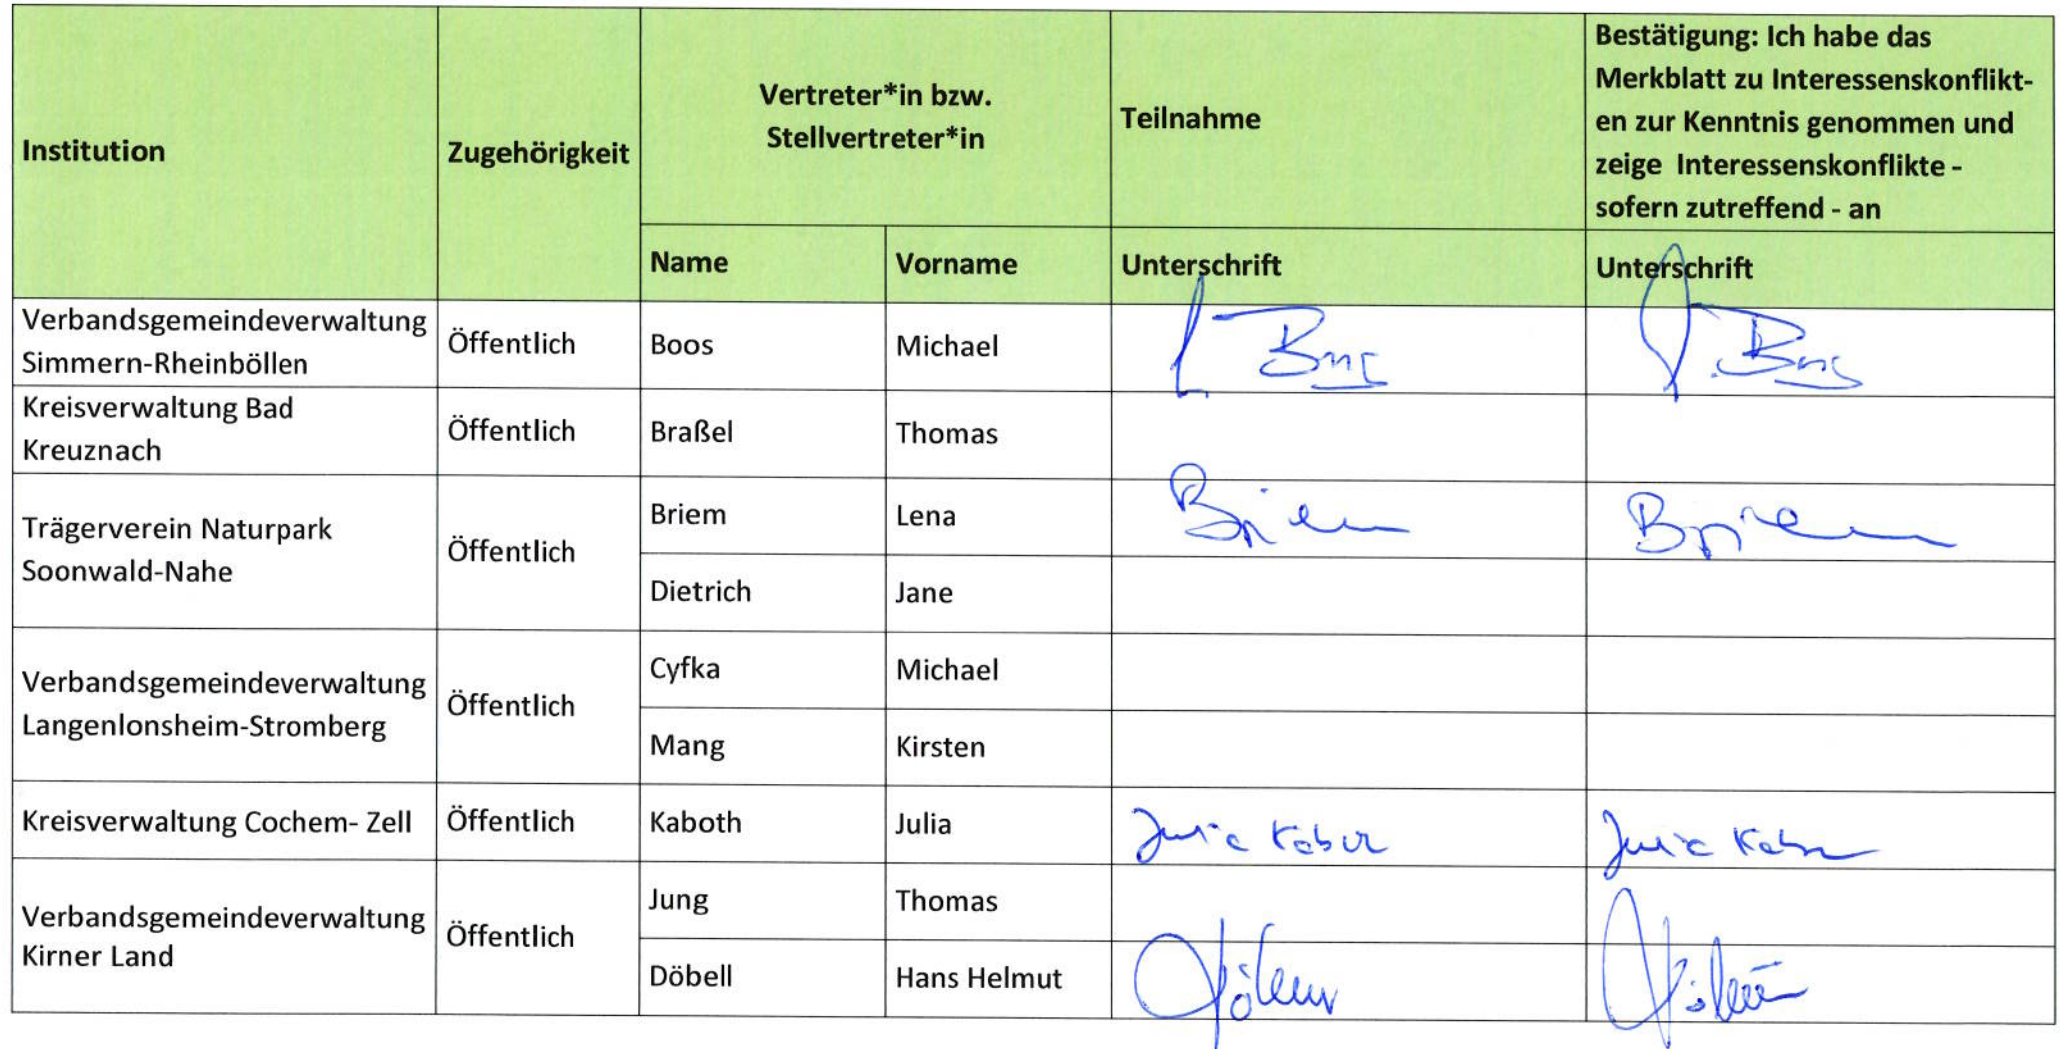 Institution
Zugehörigkeit
Vertreter*in bzw.
Stellvertreter*in
Teilnahme
Bestätigung: Ich habe das
Merkblatt zu Interessenskonflikt-
en zur Kenntnis genommen und
zeige Interessenskonflikte -
sofern zutreffend - an
Name
Vorname
Unterschrift
Unterschrift
Verbandsgemeindeverwaltung
Simmern-Rheinböllen
Öffentlich
Boos
Michael
Kreisverwaltung Bad
Kreuznach
Öffentlich
Braßel
Thomas
Trägerverein Naturpark
Soonwald-Nahe
Öffentlich
Briem
Lena
Briem
Briem
Dietrich
Jane
Verbandsgemeindeverwaltung
Langenlonsheim-Stromberg
Öffentlich
Cyfka
Michael
Mang
Kirsten
Kreisverwaltung Cochem- Zell
Öffentlich
Kaboth
Julia
Julia
Julia
Verbandsgemeindeverwaltung
Kirner Land
Öffentlich
Jung
Thomas
Döbell
Hans Helmut